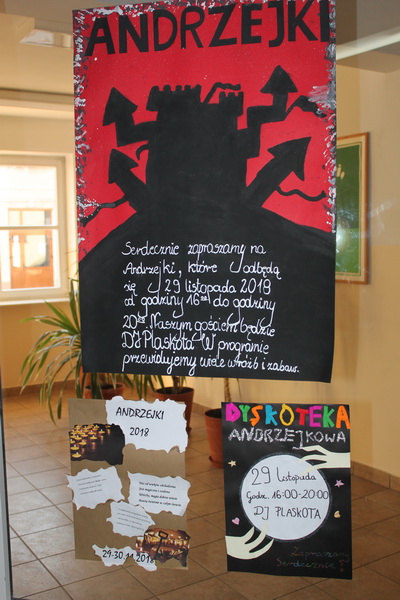 ANDRZEJKI
Serdecznie zapraszamy na
Andrzejki, które odbędą
się 29 listopada 2018
od godziny 16⁰⁰ do godziny
20⁰⁰. Naszym gościem będzie
DJ Plaskota. W programie
przewidujemy wiele wróżb i zabaw.
ANDRZEJKI
2018
29-30.11.2018
DYSKOTEKA
ANDRZEJKOWA
29 listopada
Godz. 16:00-20:00
DJ PLASKOTA
Zapraszamy
Serdecznie!